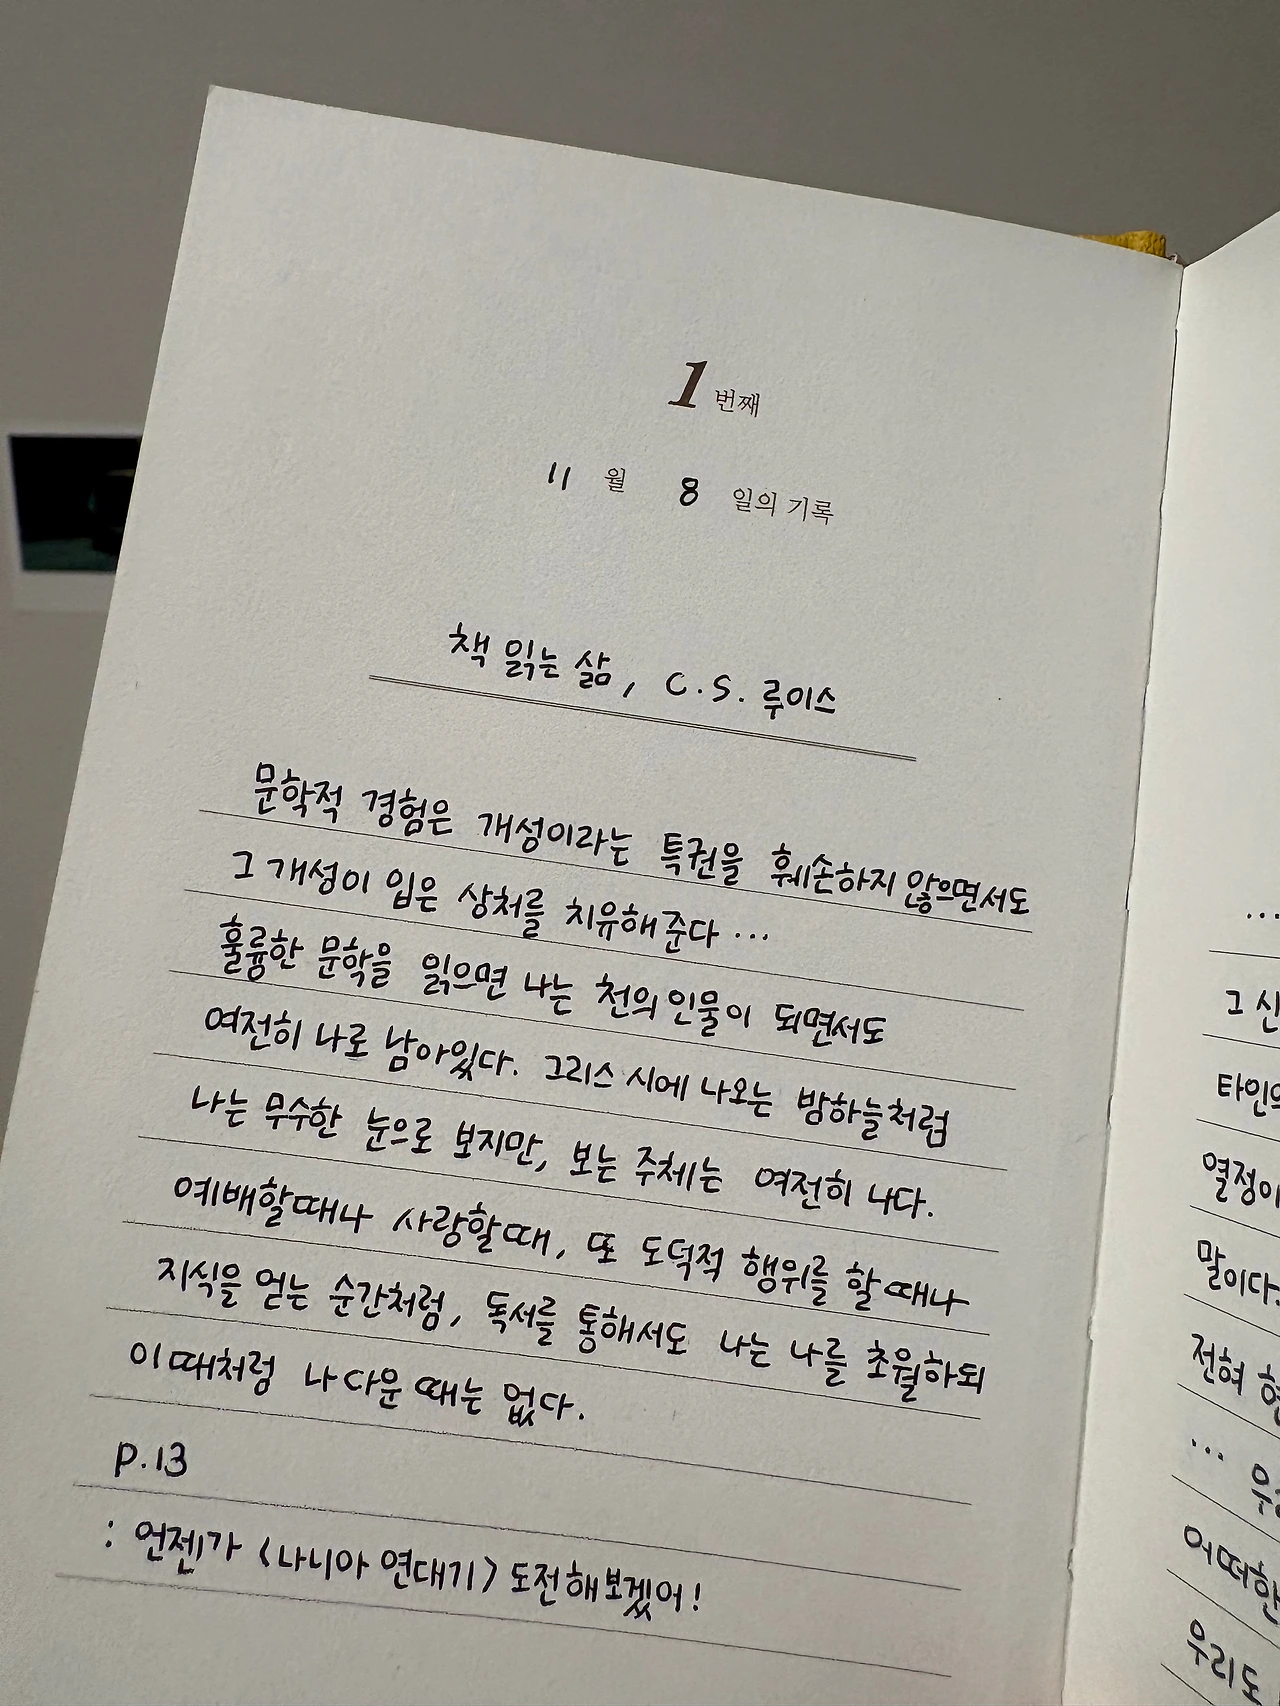 1 번째
11 월 8 일의 기록
책 읽는 삶, C.S. 루이스
문학적 경험은 개성이라는 특권을 훼손하지 않으면서도
그 개성이 입은 상처를 치유해준다 ...
훌륭한 문학을 읽으면 나는 천의 인물이 되면서도
여전히 나로 남아있다. 그리스 시에 나오는 밤하늘처럼
나는 무수한 눈으로 보지만, 보는 주체는 여전히 나다.
예배할때나 사랑할때, 또 도덕적 행위를 할때나
지식을 얻는 순간처럼, 독서를 통해서도 나는 나를 초월하되
이때처럼 나다운 때는 없다.
P.13
: 언젠가 <나니아 연대기> 도전해보겠어!
...
그
열정이
말이다.
전혀
...
어떠한
우리도